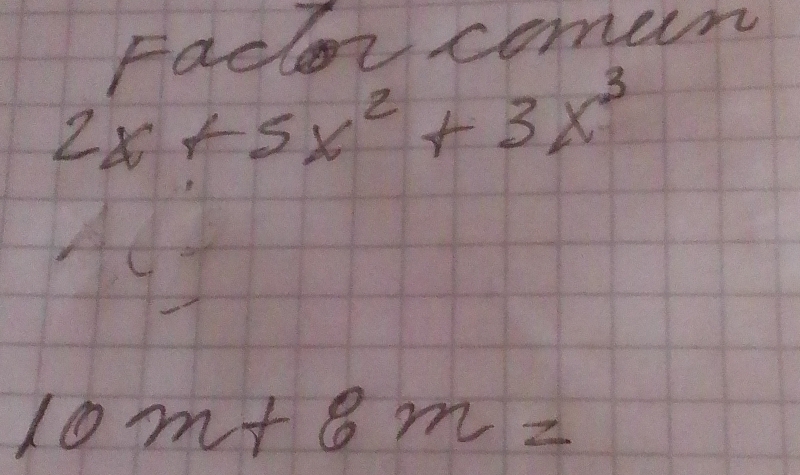 Factor comun
2x + 5x² + 3x³
10m + 8m =